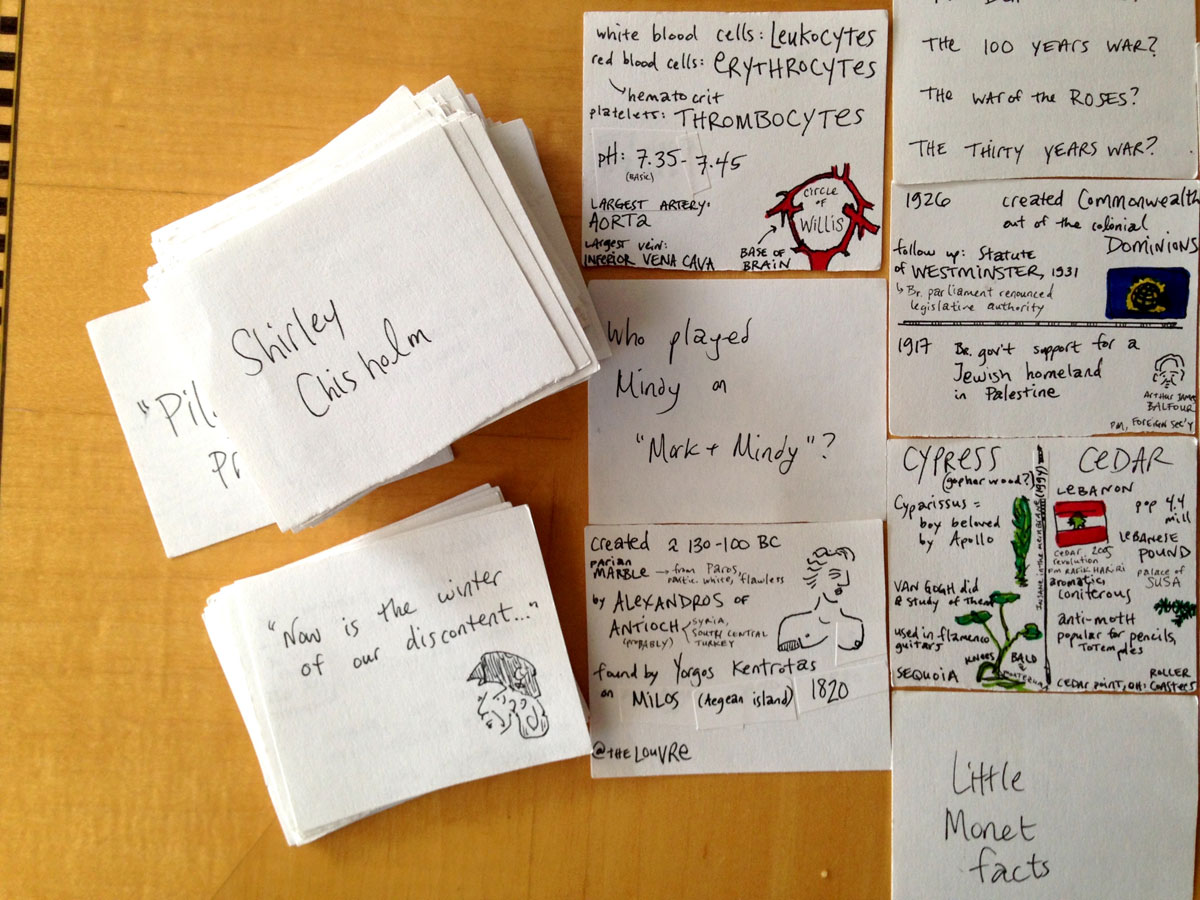 Shirley
Chisholm
"Pil
Pr
"Now is the winter
of our discontent..."
white blood cells: Leukocytes
red blood cells: ERYTHROCYTES
hematocrit
platelets: THROMBOCYTES
pH: 7.35-7.45
(BASIC)
LARGEST ARTERY:
AORTA
LARGEST VEIN:
INFERIOR VENA CAVA
CIRCLE
OF
WILLIS
BASE OF
BRAIN
Who played
Mindy on
"Mork + Mindy"?
created 2 130-100 BC
PARIAN
MARBLE → from Paros,
partic. white, flawless
by ALEXANDROS OF
ANTIOCH
(PROBABLY)
SYRIA,
SOUTH CENTRAL
TURKEY
found by Yorgos Kentrotas
on MILOS (Aegean island) 1820
@ THE LOUVRE
THE 100 YEARS WAR?
THE WAR of the ROSES?
THE THIRTY YEARS WAR?
1926 created Commonwealth
out of the colonial
DOMINIONS
follow up: Statute
of WESTMINSTER, 1931
Br. parliament renounced
legislative authority
1917 Br. gov't support for a
Jewish homeland
in Palestine
ARTHUR JAMES
BALFOUR
PM, FOREIGN SEC'Y
CYPRESS
(gopher wood?)
Cyparissus =
boy beloved
by Apollo
VAN GOGH did
a study of them
used in flamenco
guitars
SEQUOIA
KNEES
BALD
INSANE in the MEMBRANE (1994)
CEDAR
LEBANON
pop 4.4
mill
LEBANESE
POUND
CEDAR, 2005
revolution
PM RAFIK HARIRI
palace of
SUSA
aromatic,
coniferous
anti-moth
popular for pencils,
TOTEMPLES
ROLLER
CEDAR POINT, OH: COASTERS
Little
Monet
facts